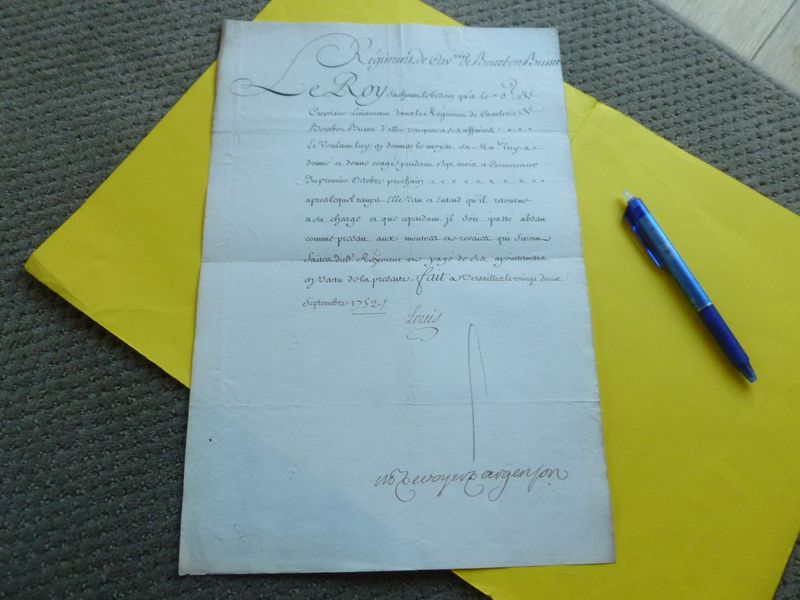 Régiment de Cav.rie de Bourbon Busset
Le Roy sachant le besoin qu'a le S.r de
Lieutenant dans le Régiment de Cavalerie de
Bourbon Busset d'aller vacquer a ses affaires
Et Voulant luy en donner le moyen Sa Ma.té luy a
donné et donne congé pendant mois a Commencer
Du premier Octobre prochain
apres lequel temps Elle Veut et Entend qu'il retourne
a sa charge et que cependant jl soit passé absent
comme present aux montres et reveües qui seront
faites dud. Régiment et payé de ses apointements
en vertu de la presente fait a Versailles le vingt deux
Septembre 1752
Louis
M P De voyer D'argenson